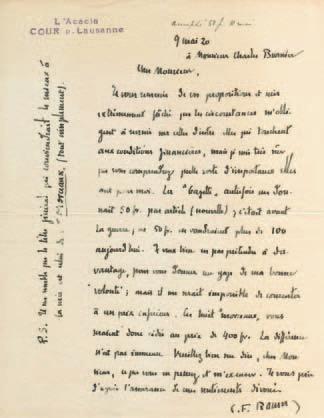 L'Acacia
COUR p. Lausanne
9 mai 20
à Monsieur Charles Burnier
Cher Monsieur,
Je vous remercie de vos propositions et suis
extrêmement fâché que les circonstances m'obli-
gent à revenir sur celles d'entre elles qui touchent
aux conditions financières, mais je suis très sûr
que vous comprendrez quelle sorte d'importance elles
ont pour moi. La "Gazette" autrefois me don-
nait 50 fr. par article (nouvelle); c'était avant
la guerre; ces 50 fr. en vaudraient plus de 100
aujourd'hui. Je veux bien ne pas prétendre à da-
vantage, pour vous donner un gage de ma bonne
volonté; mais il me serait impossible de consentir
à un prix inférieur. Les huit morceaux vous
seraient donc cédés au prix de 400 fr. La différence
n'est pas immense. Veuillez bien me dire, cher Mon-
sieur, ce que vous en pensez, et m'excuser. Je vous prie
d'agréer l'assurance de mes sentiments dévoués.
C. F. Ramuz
P. S. Il me semble que le titre général qui conviendrait le mieux à
la série est celui de: "Morceaux" (tout simplement).